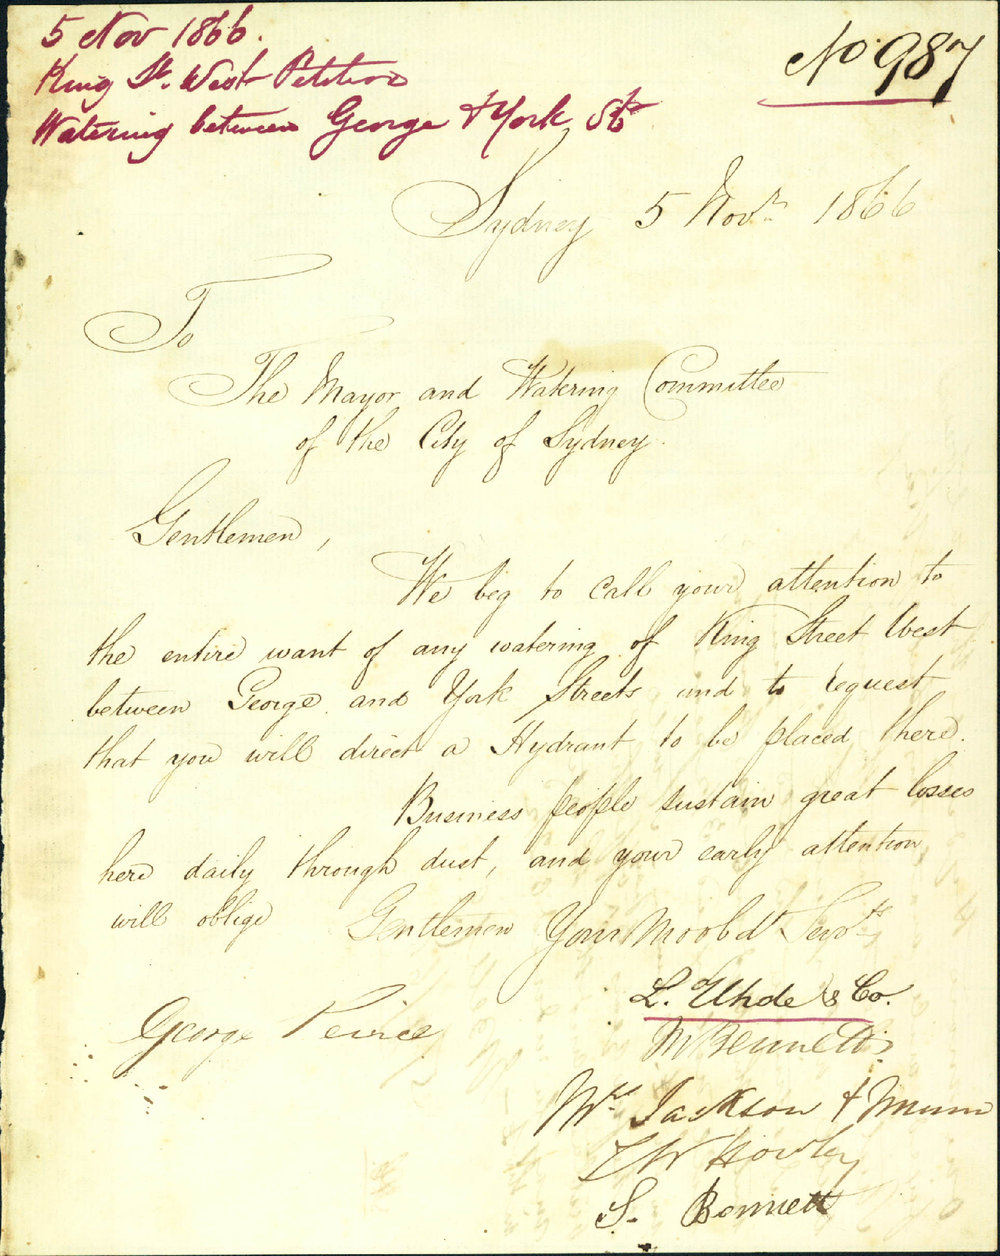 5 Nov 1866.
No 987
King St. West Petition
Watering between George & York Sts
Sydney 5 Novr. 1866
To
The Mayor and Watering Committee
of the City of Sydney.
Gentlemen,
We beg to call your attention to
the entire want of any watering of King Street West
between George and York Streets and to request
that you will direct a Hydrant to be placed there.
Business people sustain great losses
here daily through dust, and your early attention
will oblige Gentlemen Your Mo obdt Servts
L. Uhde & Co.
George Peirce
M Bennett
Jackson &
S. Bennett